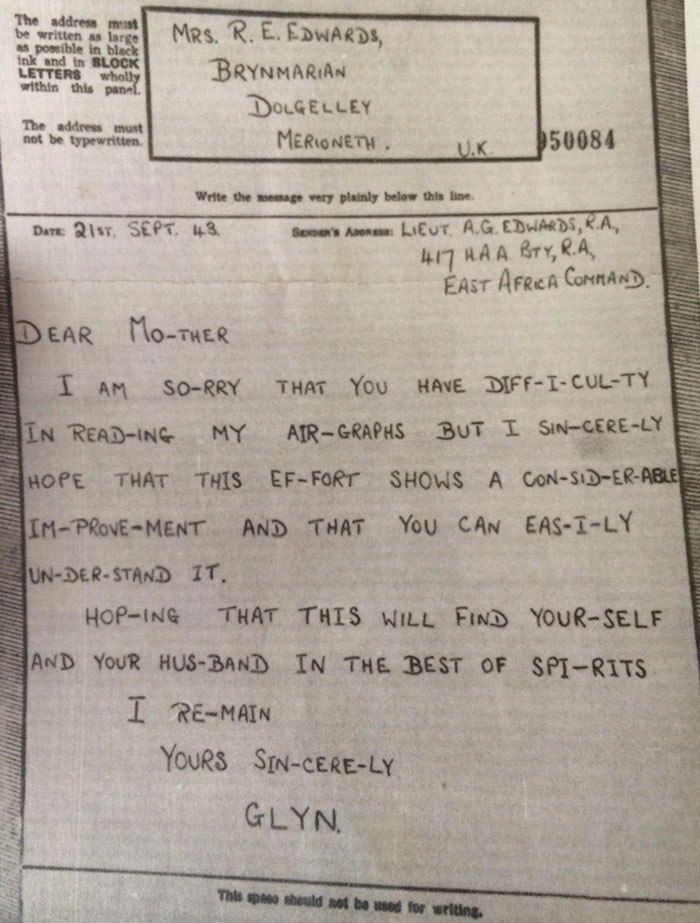 The address must
be written as large
as possible in black
ink and in BLOCK
LETTERS wholly
within this panel.
The address must
not be typewritten.
MRS. R. E. EDWARDS,
BRYNMARIAN
DOLGELLEY
MERIONETH. U.K.
950084
Write the message very plainly below this line.
DATE: 21ST. SEPT. 43. SENDER'S ADDRESS: LIEUT. A.G. EDWARDS, R.A.,
417 H.A.A. BTY, R.A,
EAST AFRICA COMMAND.
DEAR MO-THER
I AM SO-RRY THAT YOU HAVE DIFF-I-CUL-TY
IN READ-ING MY AIR-GRAPHS BUT I SIN-CERE-LY
HOPE THAT THIS EF-FORT SHOWS A CON-SID-ER-ABLE
IM-PROVE-MENT AND THAT YOU CAN EAS-I-LY
UN-DER-STAND IT.
HOP-ING THAT THIS WILL FIND YOUR-SELF
AND YOUR HUS-BAND IN THE BEST OF SPI-RITS
I RE-MAIN
YOURS SIN-CERE-LY
GLYN.
This space should not be used for writing.